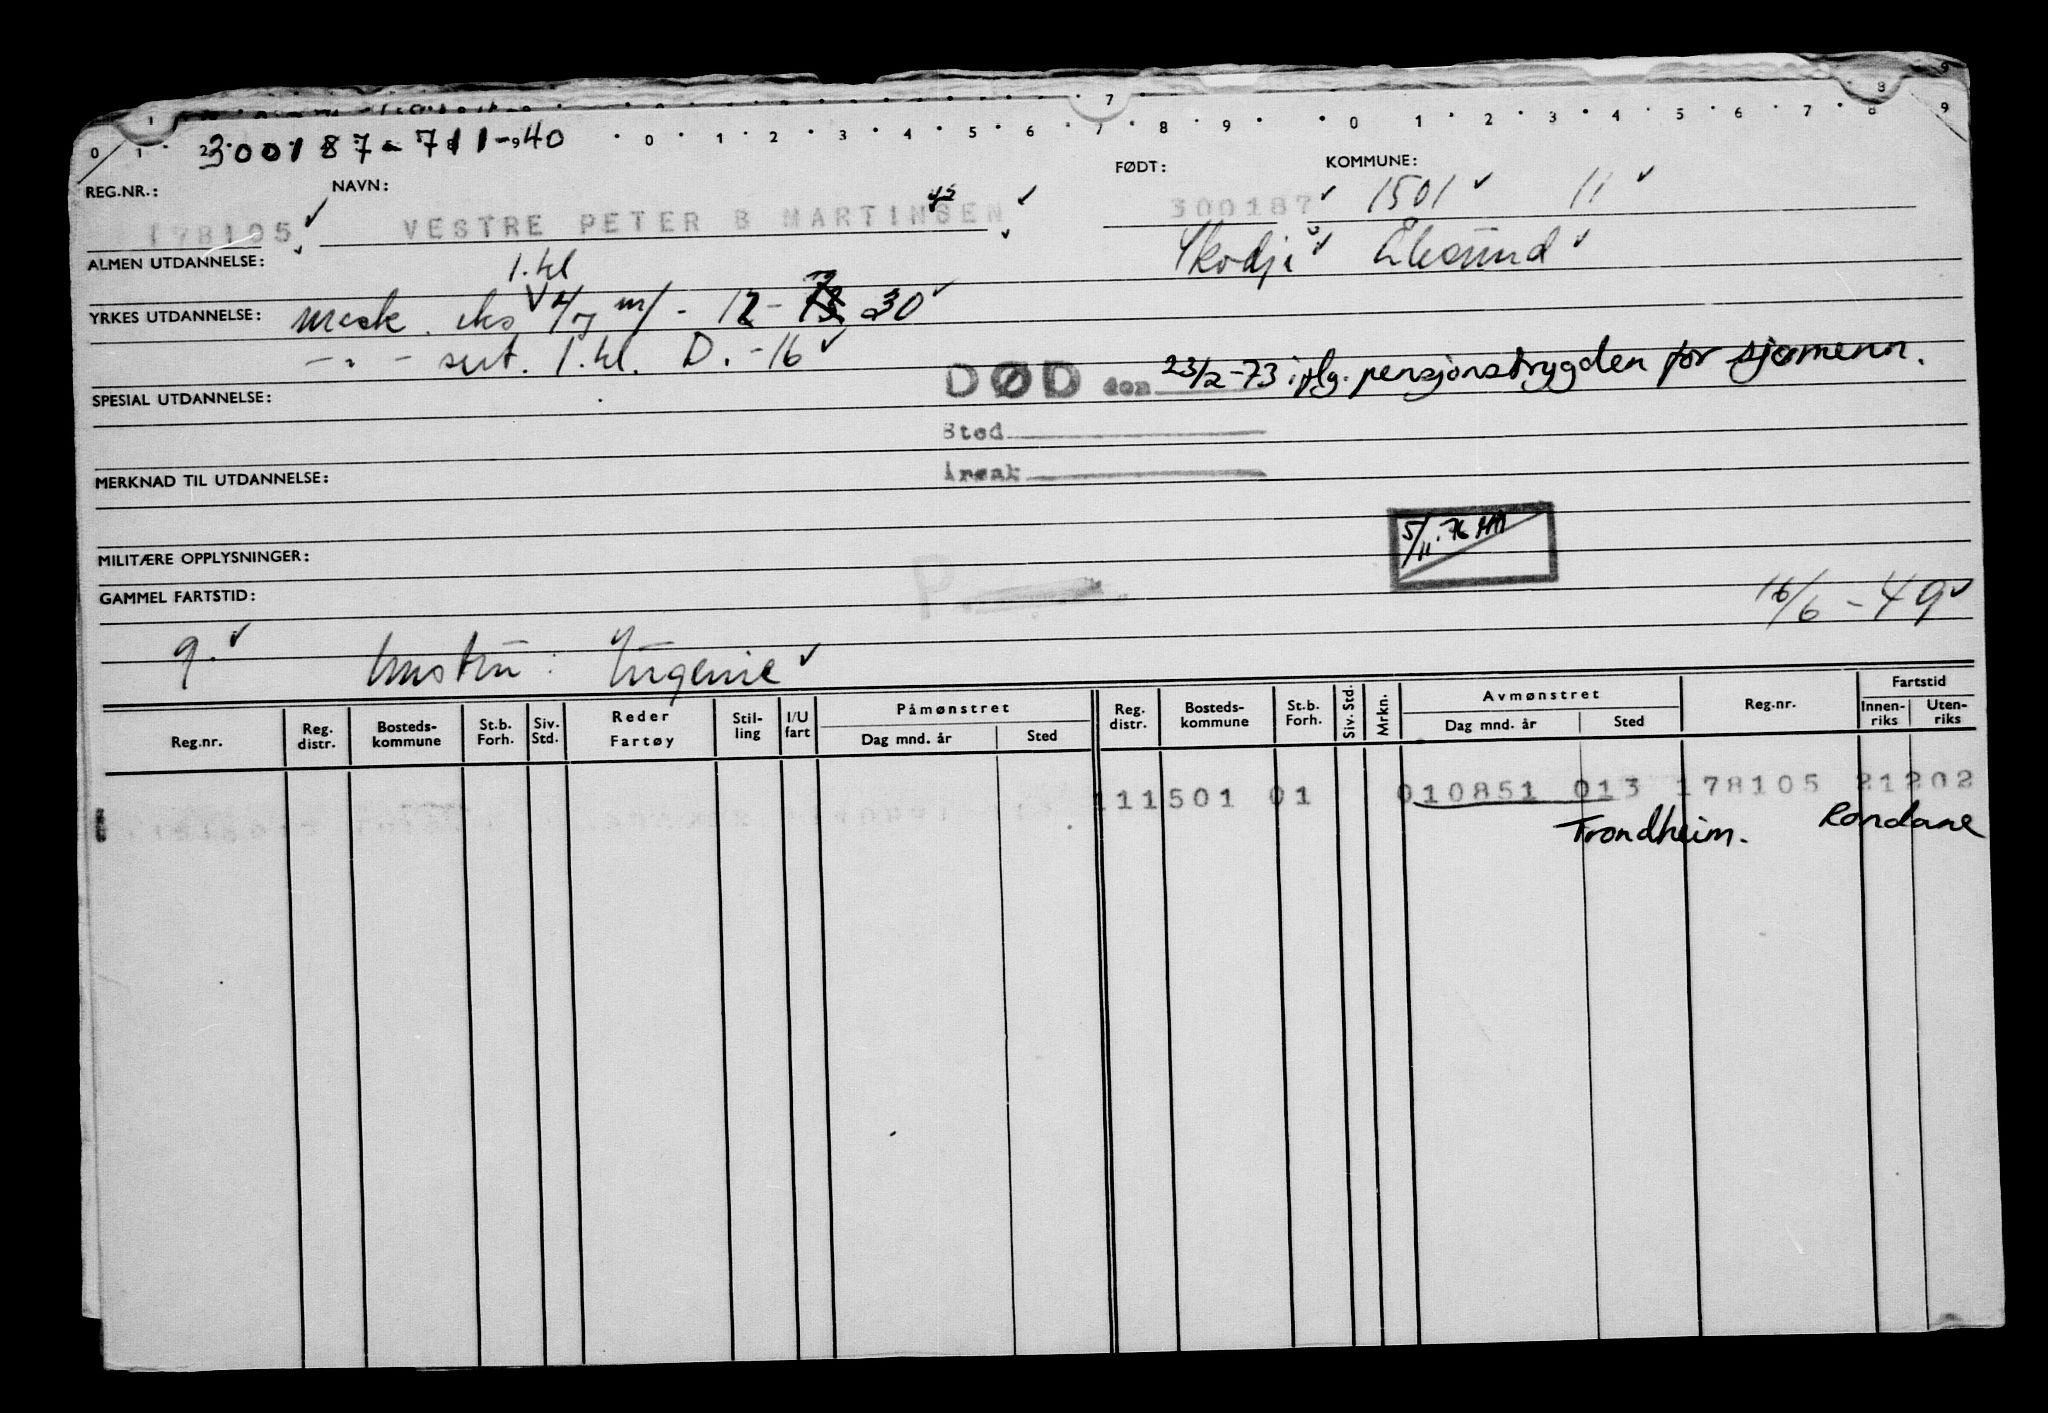 300187-711-40
0 1 2 3 4 5 6 7 8 9 0 1 2 3 4 5 6 7 8 9
REG.NR.: NAVN: FØDT: KOMMUNE:
178105 VESTRE PETER B MARTINSEN 300187 1501 11
ALMEN UTDANNELSE: Skodje Ålesund
1.kl
YRKES UTDANNELSE: mask. eks 30
sert. 1.kl. D. -16
SPESIAL UTDANNELSE: DØD den 23/2-73 iflg. pensjonstrygden for sjømenn.
Sted
MERKNAD TIL UTDANNELSE: Årsak
5/11.76
MILITÆRE OPPLYSNINGER:
GAMMEL FARTSTID: P
16/6-49
9. hustru: Eugenie
Reg.nr. Reg. distr. Bosteds-kommune St.b. Forh. Siv. Std. Reder Fartøy Stil-ling I/U fart Påmønstret Dag mnd. år Sted Reg. distr. Bosteds-kommune St.b. Forh. Siv. Std. Mrkn. Avmønstret Dag mnd. år Sted Reg.nr. Fartstid Innen-riks Uten-riks
111501 01 010851 013 178105 21202
Trondheim. Rondane